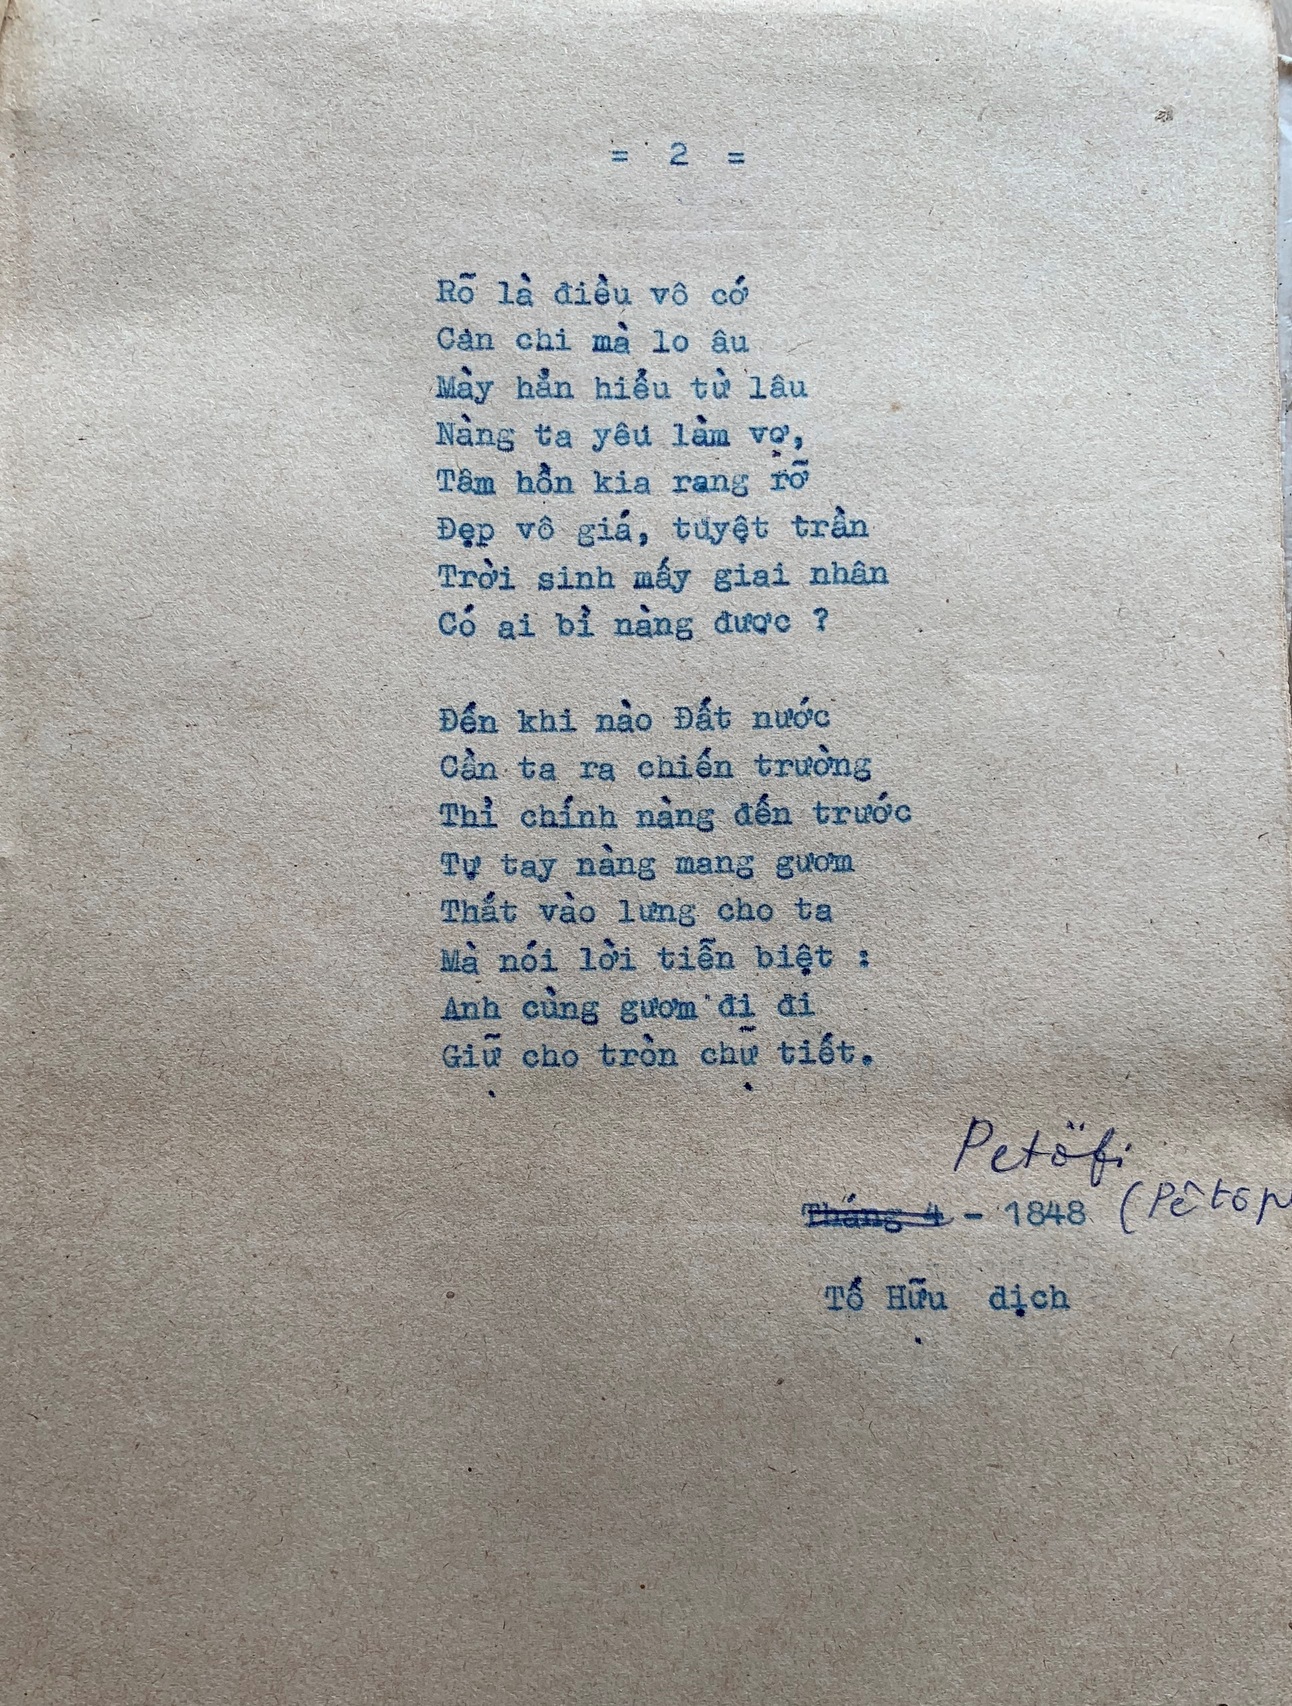 = 2 =
Rõ là điều vô cớ
Cản chi mà lo âu
Mày hẳn hiểu từ lâu
Nàng ta yêu làm vợ,
Tâm hồn kia rạng rỡ
Đẹp vô giá, tuyệt trần
Trời sinh mấy giai nhân
Có ai bỉ nàng được ?
Đến khi nào Đất nước
Cần ta ra chiến trường
Thì chính nàng đến trước
Tự tay nàng mang gươm
Thắt vào lưng cho ta
Mà nói lời tiễn biệt :
Anh cùng gươm đi đi
Giữ cho tròn chữ tiết.
Petöfi
Tháng 4 - 1848 (Pêtôp
Tố Hữu dịch